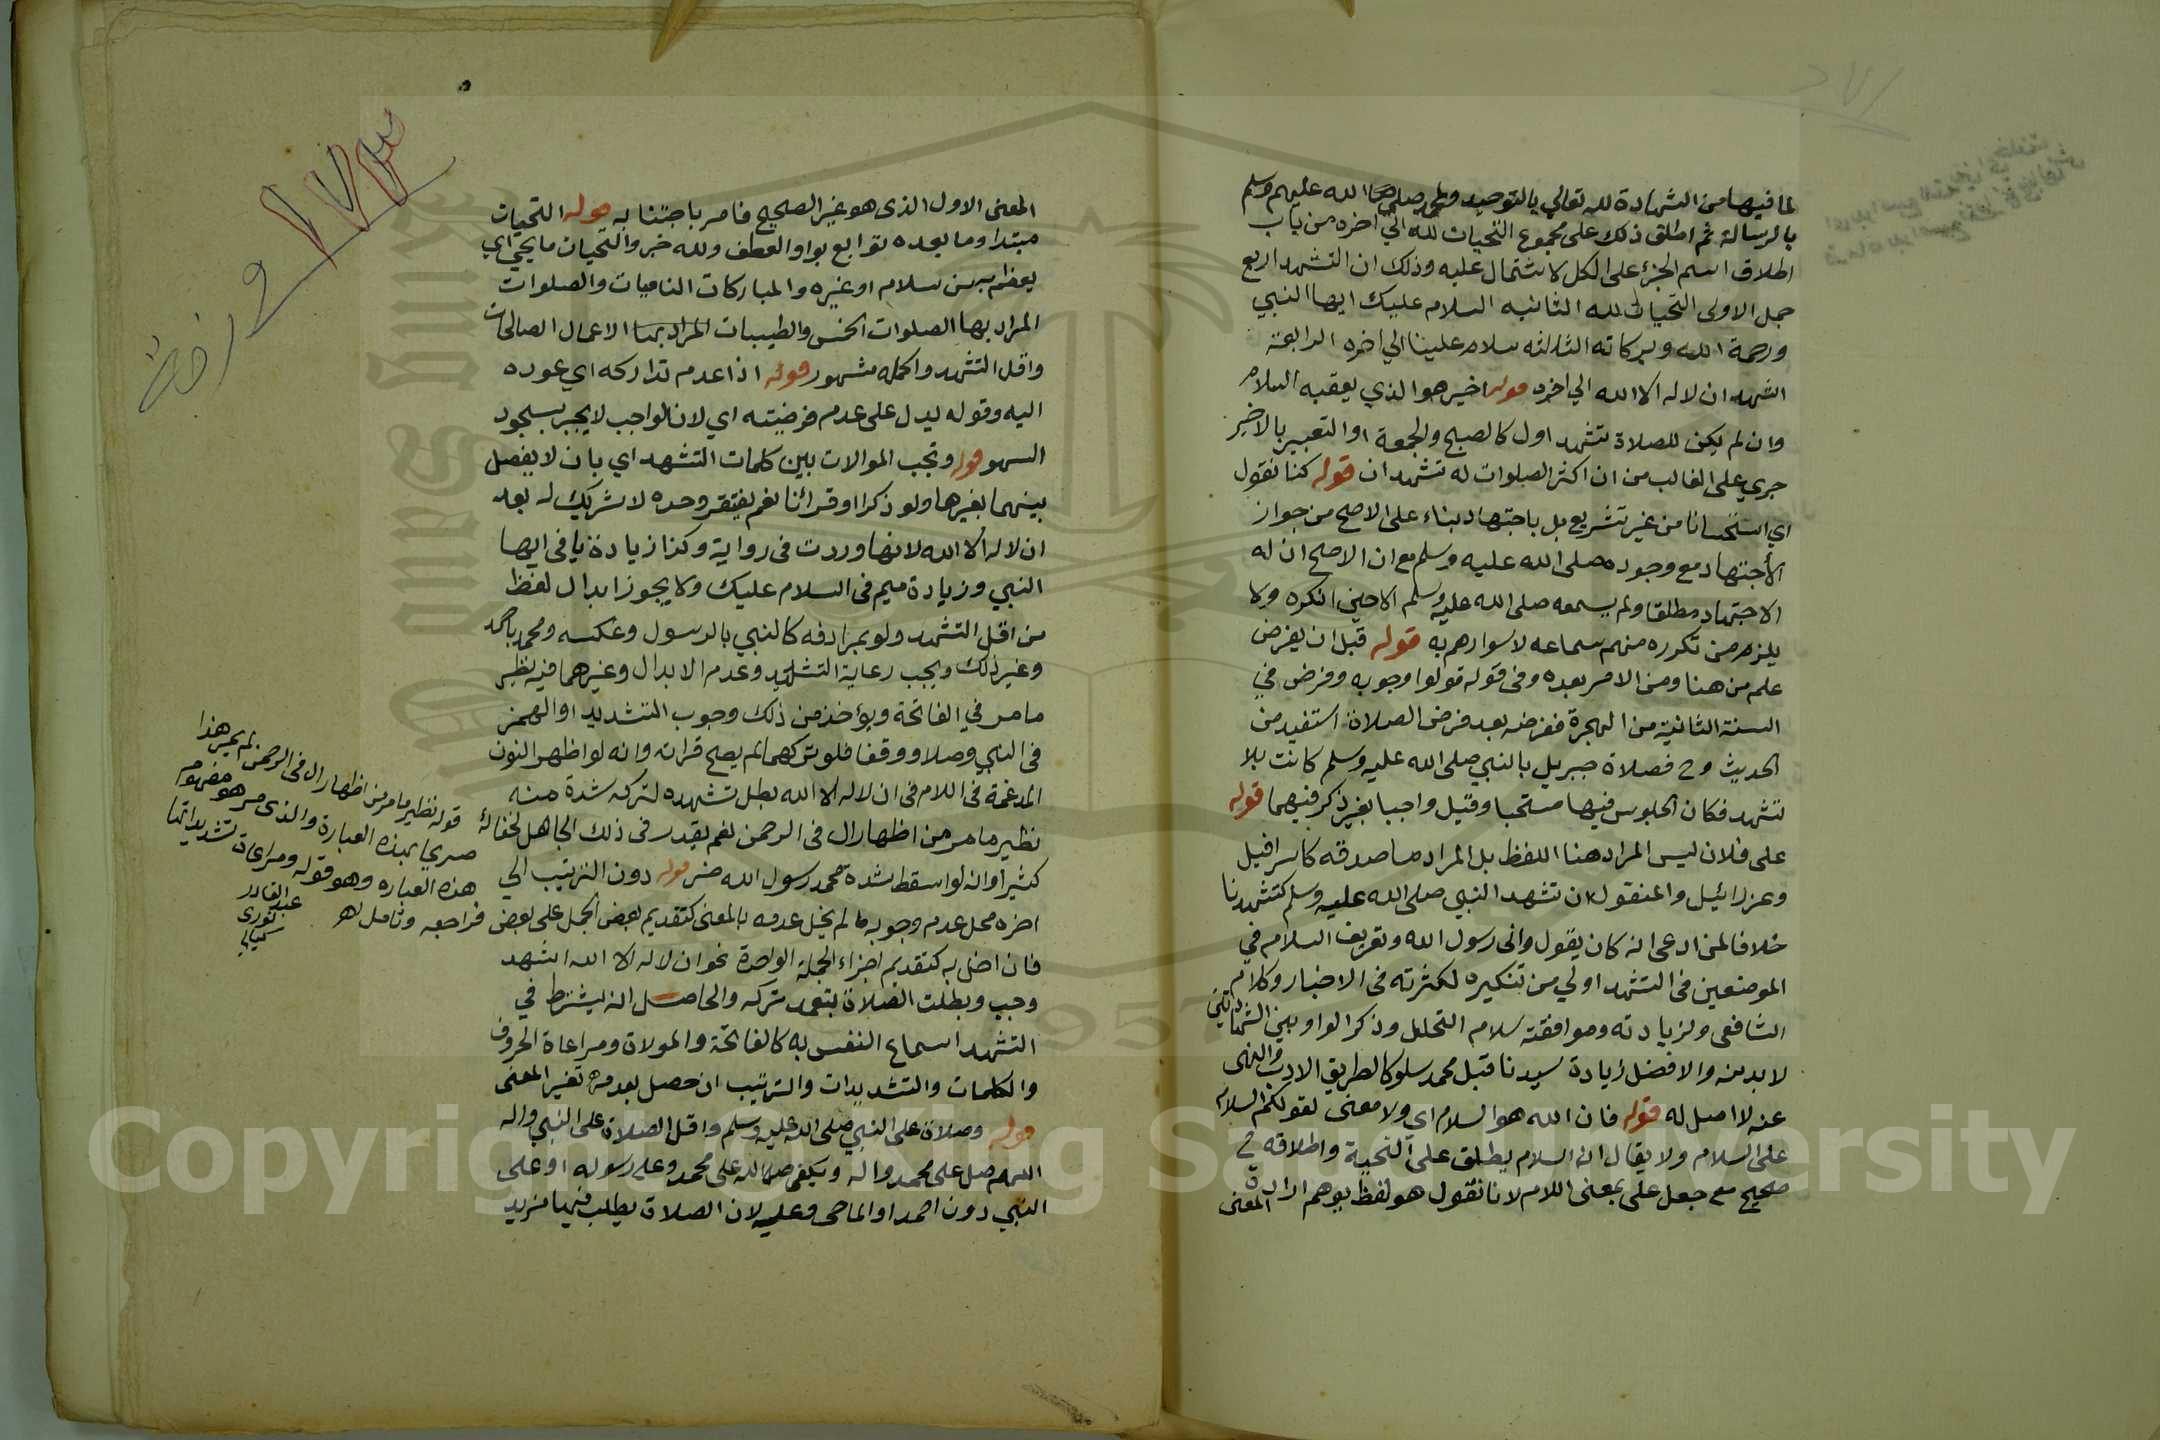 لما فيها من الشهادة لله تعالي بالتوحيد ولمحمد صلي الله عليه وسلم
بالرسالة ثم اطلق ذلك على مجموع التحيات لله الي اخره من باب
اطلاق اسم الجزء على الكل لاشتمال عليه وذلك ان التشهد اربع
جمل الاولى التحيات لله الثانيه السلام عليك ايها النبي
ورحمة الله وبركاته الثالثه سلام علينا الي اخره الرابعة
اشهد ان لا اله الا الله الي اخره قوله اخير هو الذي يعقبه السلام
وان لم يكن للصلاة تشهد اول كالصبح والجمعة او التعبير بالاخير
جري على الغالب من ان اكثر الصلوات له تشهدان قوله كنا نقول
اي استحسانا من غير تشريع بل باجتهاد بناء على الاصح من جواز
الاجتهاد مع وجوده صلى الله عليه وسلم مع ان الاصح ان له
الاجتهاد مطلقا ولم يسمعه صلى الله عليه وسلم الا حين انكره ولا
يلزم من تكرره منهم سماعه لاسرارهم به قوله قبل ان يفرض
علم من هنا ومن الامر بعده وفى قوله قولوا وجوبه وفرض في
السنة الثانية من الهجرة ففرضه بعد فرض الصلاة استفيد من
الحديث وح فصلاة جبريل بالنبي صلى الله عليه وسلم كانت بلا
تشهد فكان الجلوس فيها مستحبا وقيل واجبا بغير ذكر فيهما قوله
على فلان ليس المراد هنا اللفظ بل المراد ما صدقه كاسرافيل
وعزرائيل والمنقول ان تشهد النبي صلى الله عليه وسلم كتشهدنا
خلافا لمن ادعى انه كان يقول وانى رسول الله وتعريف السلام في
الموضعين فى التشهد اولي من تنكيره لكثرته فى الاخبار وكلام
الشافعى ولزيادته وموافقته سلام التحلل وذكر الواو بين الشهادتين
لا بد منه والافضل زيادة سيدنا قبل محمد سلوكا لطريق الادب والنهى
عنه لا اصل له قوله فان الله هو السلام اى ولا معنى لقولكم السلام
على السلام ولا يقال ان السلام يطلق على التحية واطلاقه ح
صحيح مع جعل على بمعنى اللام لانا نقول هو لفظ يوهم ارادة المعنى
المعنى الاول الذى هو غير الصحيح فامر باجتنابه قوله التحيات
مبتدا وما بعده توابع بواو العطف ولله خبر والتحيات ما يحيي اي
يعظم به من سلام او غيره والمباركات الناميات والصلوات
المراد بها الصلوات الخمس والطيبات المراد بها الاعمال الصالحات
واقل التشهد واكمله مشهور قوله اذا عدم تداركه اي عوده
اليه وقوله يدل على عدم فرضيته اي لان الواجب لا يجبر بسجود
السهو قوله وتجب الموالات بين كلمات التشهد اي بان لا يفصل
بينهما بغيرها ولو ذكرا او قرانا نعم يغتفر وحده لا شريك له بعد
ان لا اله الا الله لانها وردت فى رواية وكذا زيادة يا فى ايها
النبي وزيادة ميم فى السلام عليك ولا يجوز ابدال لفظ
من اقل التشهد ولو بمرادفه كالنبي بالرسول وعكسه ومحمد باحمد
وغير ذلك ويجب رعاية التشديد وعدم الابدال وغيرهما فيه نظير
ما مر في الفاتحة ويؤخذ من ذلك وجوب التشديد او الهمز
فى النبي وصلا ووقفا فلو تركهما لم يصح قراته وانه لو اظهر النون
المدغمة فى اللام فى ان لا اله الا الله بطل تشهده لتركه شدة منه
نظير ما مر من اظهار ال فى الرحمن نعم يعذر فى ذلك الجاهل لخفائه
كثيرا وانه لو اسقط شدة محمد رسول الله ضر قوله دون الترتيب الي
اخره محل عدم وجوبه ما لم يخل عدمه بالمعنى كتقديم بعض الجمل على بعض
فان اخل به كتقديم اجزاء الجملة الواحدة نحو ان لا اله الا الله اشهد
وجب وبطلت الصلاة بتعمد تركه والحاصل انه يشترط في
التشهد اسماع النفس به كالفاتحة والمولاة ومراعاة الحروف
والكلمات والتشديدات والترتيب ان حصل بعدمه تغير المعنى
قوله وصلاة على النبي صلى الله عليه وسلم واقل الصلاة على النبي واله
اللهم صل على محمد واله ويكفى صلى الله على محمد وعلى رسوله او على
النبي دون احمد او الماحى وعليه لان الصلاة يطلب فيها مزيد
قوله نظير ما مر من اظهار ال فى الرحمن لم يمر هذا
صريحا بهذه العبارة والذى مر هو مفهوم
هذه العباره وهو قوله ومراعات تشديداتها
فراجعه وتامل اهـ
عبد القادر